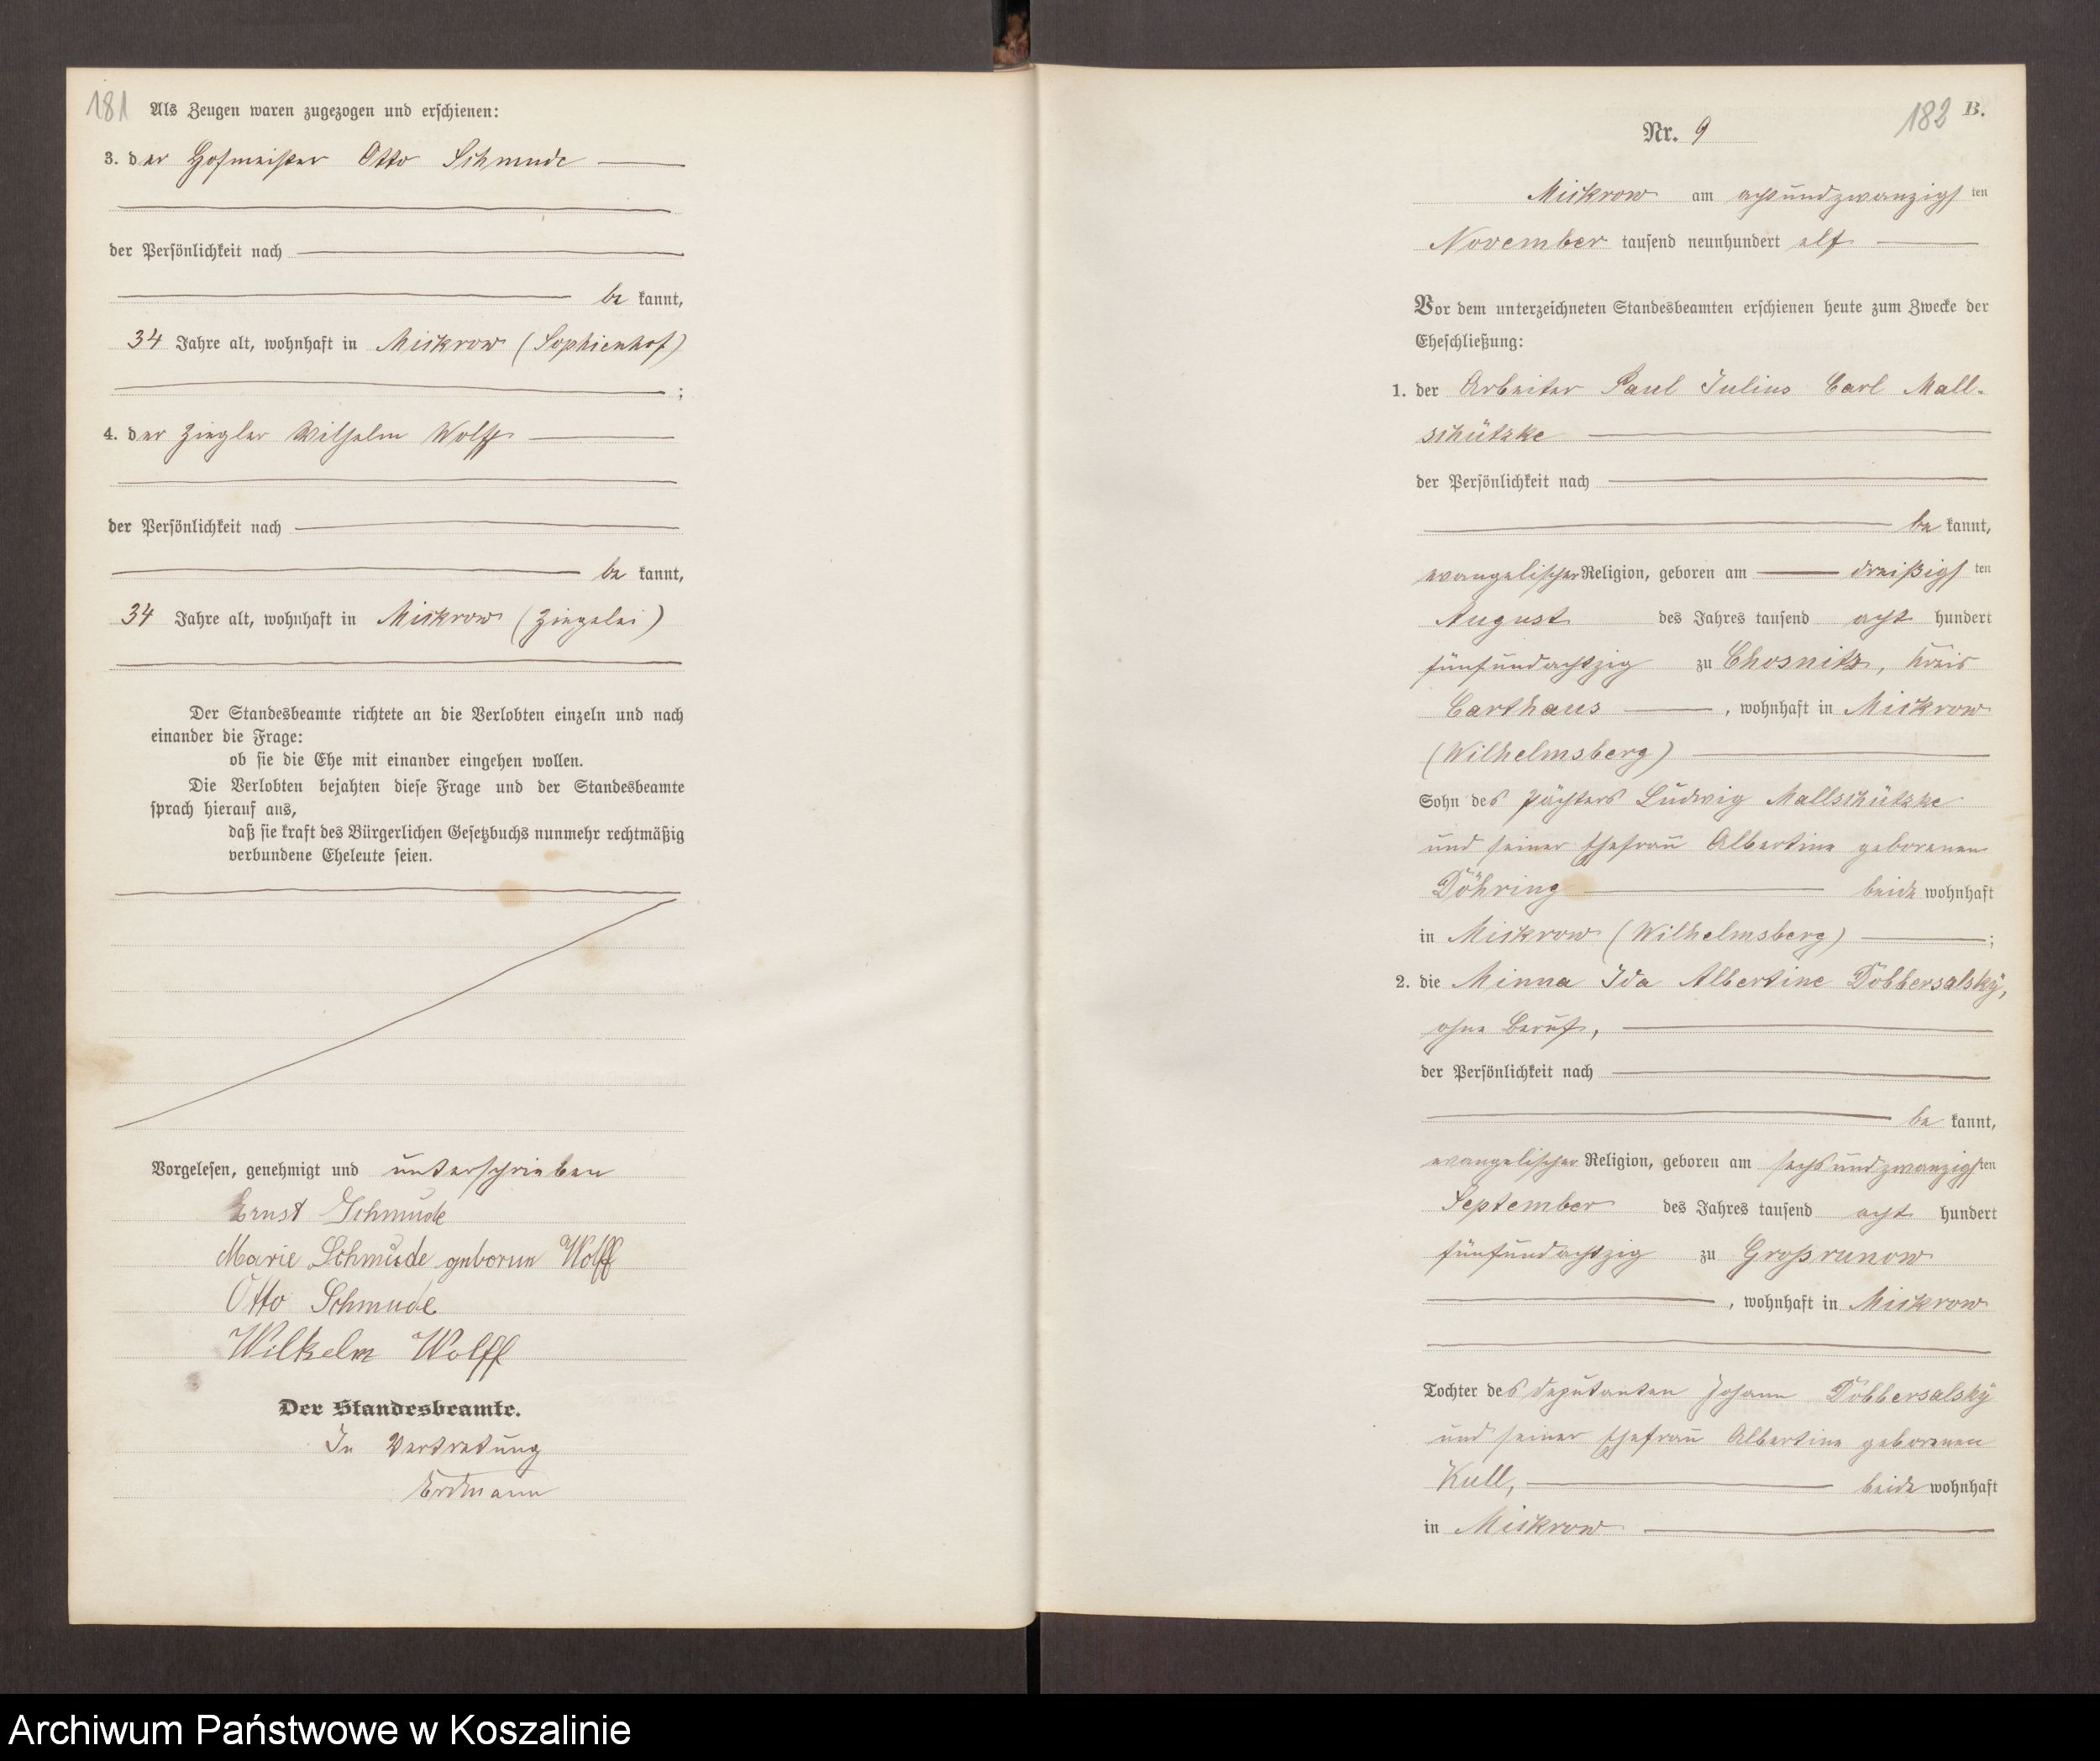 181
Als Zeugen waren zugezogen und erschienen:
3. der Hofmeister Otto Schmude
der Persönlichkeit nach
be kannt,
34 Jahre alt, wohnhaft in Mickrow (Sophienhof)
;
4. der Ziegler Wilhelm Wolff
der Persönlichkeit nach
be kannt,
34 Jahre alt, wohnhaft in Mickrow (Ziegelei)
Der Standesbeamte richtete an die Verlobten einzeln und nach
einander die Frage:
ob sie die Ehe mit einander eingehen wollen.
Die Verlobten bejahten diese Frage und der Standesbeamte
sprach hierauf aus,
daß sie kraft des Bürgerlichen Gesetzbuchs nunmehr rechtmäßig
verbundene Eheleute seien.
Vorgelesen, genehmigt und unterschrieben
Ernst Schmude
Marie Schmude geborene Wolff
Otto Schmude
Wilhelm Wolff
Der Standesbeamte.
In Vertretung
Erdmann
182 B.
Nr. 9
Mickrow am achtundzwanzigsten
November tausend neunhundert elf
Vor dem unterzeichneten Standesbeamten erschienen heute zum Zwecke der
Eheschließung:
1. der Arbeiter Paul Julius Carl Mall-
schützke
der Persönlichkeit nach
be kannt,
evangelischer Religion, geboren am dreißigsten
August des Jahres tausend acht hundert
fünfundachtzig zu Chosnitz, Kreis
Carthaus, wohnhaft in Mickrow
(Wilhelmsberg)
Sohn des Pächters Ludwig Mallschützke
und seiner Ehefrau Albertine geborenen
Döhring beide wohnhaft
in Mickrow (Wilhelmsberg) ;
2. die Minna Ida Albertine Dobbersalsky,
ohne Beruf,
der Persönlichkeit nach
be kannt,
evangelischer Religion, geboren am sechsundzwanzigsten
September des Jahres tausend acht hundert
fünfundachtzig zu Großrunow
, wohnhaft in Mickrow
Tochter des Deputanten Johann Dobbersalsky
und seiner Ehefrau Albertine geborenen
Kull, beide wohnhaft
in Mickrow
Archiwum Państwowe w Koszalinie